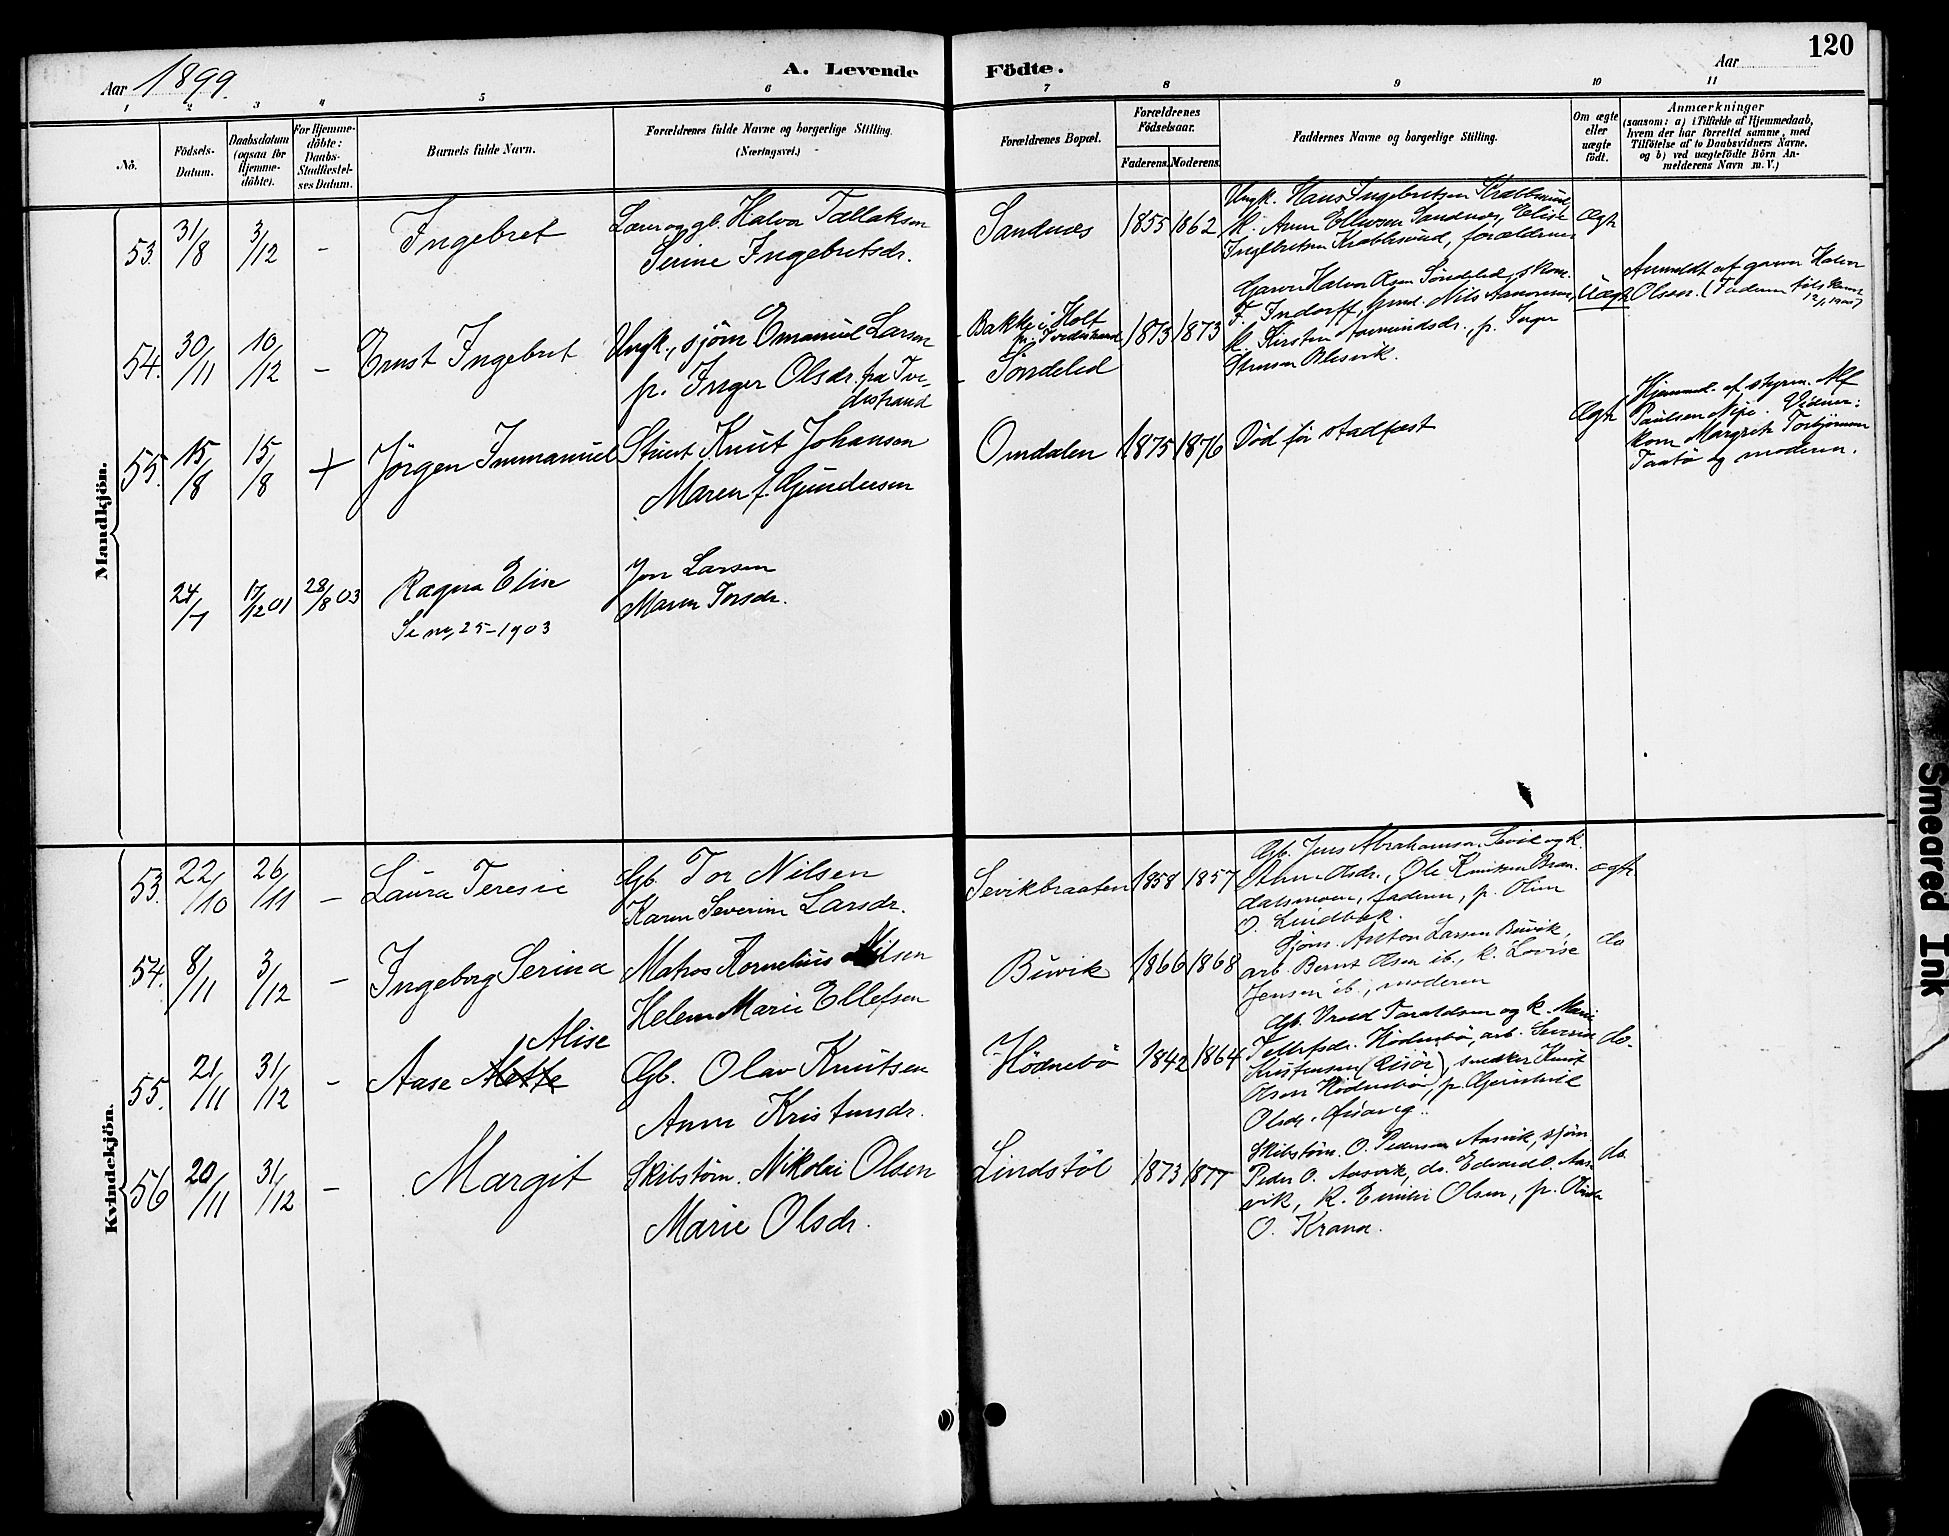 120
Aar 1899.
A. Levende Födte.
Aar
1 2 3 4 5 6 7 8 9 10 11
No.
Födsels-Datum.
Daabsdatum (ogsaa for Hjemme-döbte).
For Hjemme-döbte: Daabs-Stadfæstel-ses Datum.
Barnets fulde Navn.
Forældrenes fulde Navne og borgerlige Stilling.
(Næringsvei.)
Forældrenes Bopæl.
Forældrenes Födselsaar.
Faderens. Moderens.
Faddernes Navne og borgerlige Stilling.
Om ægte eller uægte födt.
Anmærkninger
(saasom: a) i Tilfælde af Hjemmedaab,
hvem der har forrettet samme, med
Tilföielse af to Daabsvidners Navne,
og b) ved uægtefödte Börn An-
melderens Navn m. V.)
Mandkjön.
53. 31/8 3/12 - Ingebret
Halvor Tallaksen
Serine Ingebretsdr.
Sandnæs 1855 1862
Ungk. Hans Ingebretsen Krabbesund,
k. Anne Ellevsen Sandnæs, Elise
Ingebretsen Krabbesund, forældrene
Ægte
54. 30/11 10/12 - Ernst Ingebret
Ungk., sjöm Emanuel Larsen
p. Inger Olsdr. fra Tve-
destrand
Bakke i Holt
pr. Tvedestrand
Söndeled
1873 1873
Garver Halvor Olsen Söndeled, skom.
F. Indorff, Gmd. Nils Aanonsen,
k. Kirsten Aamundsdr., p. Inger
Blesvik.
Uægte
Anmeldt af garver Halvor
Olsen.
55. 15/8 15/8 + Jörgen Immanuel
Stuert Knut Johansen
Maren f. Gundersen
Omdalen 1875 1876 Död för stadfæst
Ægte
Hjemmed. af styrm. Alf
Paulsen Vidner:
kone Margrete Torbjörnsen
Taatö og moderen.
24/7 17/12 01 28/8 03 Ragna Elise
Se no. 25-1903
Jon Larsen
Maren Torsdr.
Kvindekjön.
53. 22/10 26/11 - Laura Teresie
Gb. Tor Nilsen
Karen Severine Larsdr.
Sevikbraaten 1858 1857
Gb. Jens Abrahamsen Sevik og k.
Anne Olsdr., Ole Knutsen Bran-
dalsmoen, faderen, p. Oline
O. Lindbæk.
ægte
54. 8/11 3/12 - Ingeborg Serina
Matros Kornelius Nilsen
Helene Marie Ellefsen
Buvik 1866 1868
Sjöm. Anton Larsen Buvik,
arb. Bernt Olsen ib., k. Lovise
Jensen ib., moderen
do
55. 21/11 31/12 - Aase Mette Alise
Gb. Olav Knutsen
Anne Kristensdr.
Hödnebö 1842 1864
Gb. Vrold Taraldsen og k. Marie
Tellefsdr. Hödnebö, arb. Severin
Kristensen (Risör), snedker Knut
Olsen Hödnebö, p. Gunhild
Olsdr.
do.
56 20/11 31/12 - Margit
Skibstöm. Nikolai Olsen
Marie Olsdr.
Lindstöl 1873 1877
Skibstöm. O. Pedersen Aasvik, sjöm
Peder O. Aasvik, do. Edvard O. Aas-
vik, k. Emilie Olsen, p. Oline
O. Krana.
do
Smeared Ink